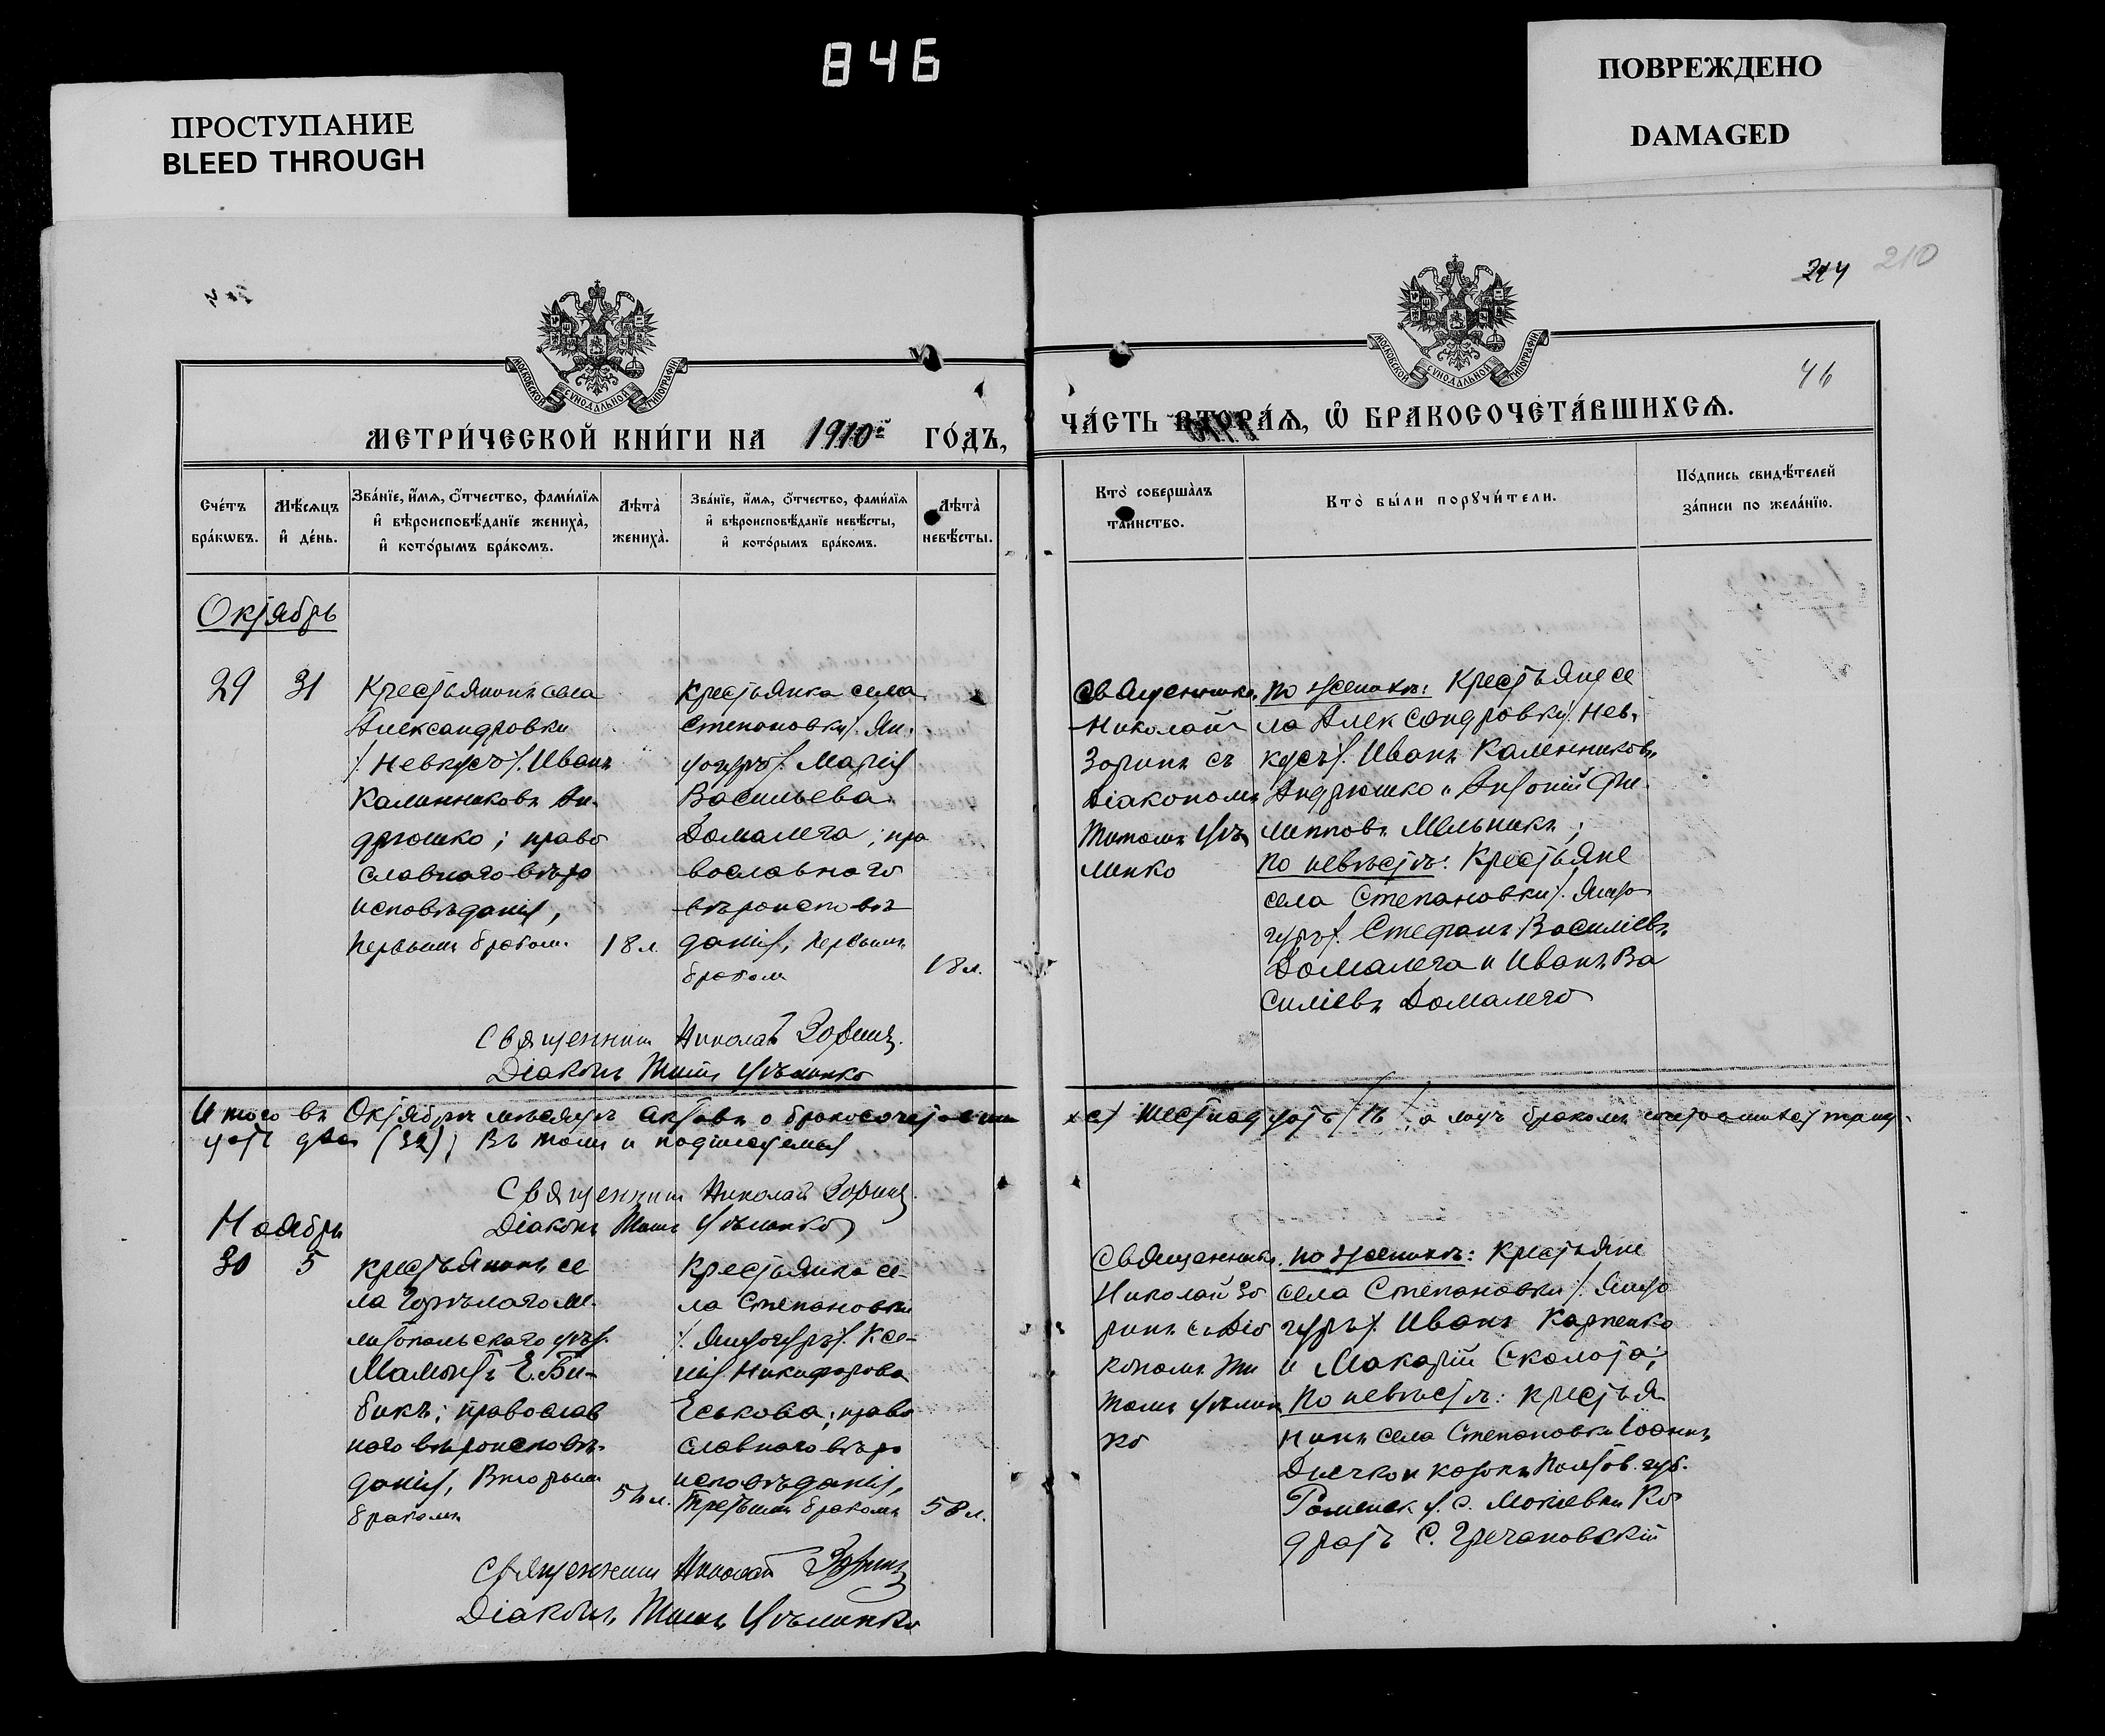 846
ПРОСТУПАНИЕ
BLEED THROUGH
ПОВРЕЖДЕНО
DAMAGED
210
46
МОСКОВСКОЙ СѴНОДАЛЬНОЙ ТИПОГРАФІИ
МОСКОВСКОЙ СѴНОДАЛЬНОЙ ТИПОГРАФІИ
МЕТРИ́ЧЕСКОЙ КНИ́ГИ НА 1910й ГО́ДЪ,
ЧА́СТЬ ВТОРА́Ѧ, Ѡ҆ БРАКОСОЧЕТА́ВШИХСѦ.
Сче́тъ бра́кѡвъ.
Мѣ́сѧцъ и҆ де́нь.
Зва́нїе, и҆́мѧ, ѻ҆́тчество, фами́лїѧ
и҆ вѣроисповѣ́данїе жениха̀,
и҆ кото́рымъ бра́комъ.
Лѣ́та̀ жениха̀.
Зва́нїе, и҆́мѧ, ѻ҆́тчество, фами́лїѧ
и҆ вѣроисповѣ́данїе невѣ́сты,
и҆ кото́рымъ бра́комъ.
Лѣ́та̀ невѣ́сты.
Кто̀ соверша̀лъ та́инство.
Кто̀ бы́ли порꙋчи́тели.
По́дпись свидѣ́телей
за́писи по жела́нїю.
Октябрь
29
31
Крестьянинъ села
Александровки
/. Невкусъ/. Иванъ
Калинниковъ Ан-
дрюшко; право
славнаго вѣро
исповѣданія,
первымъ бракомъ.
18 л.
крестьянка села
Степановки/. Ян-
Марія
Васильева
Домалега; пра
вославнаго
вѣроисповѣ
данія, первымъ
бракомъ
18 л.
Священникъ
Николай
Зоринъ съ
діакономъ
Титомъ Цѣ
линко
По женихѣ: Крестьяне се
ла Александровки/. Нев-
кусъ/. Иванъ Калинниковъ
Андрюшко и Антоній Фи-
липповъ Мельникъ;
По невѣстѣ: Крестьяне
села Степановки/.
Стефанъ Василіевъ
Домалега и Иванъ Ва
силіевъ Домалега
Священникъ Николай Зоринъ.
Діаконъ Титъ Цѣлинко
Итого въ Октябрѣ мѣсяцѣ актовъ о бракосочетавши
хся шестнадцать /16/, а лицъ бракомъ сочетавшихся трид-
цать два (32); въ томъ и подписуемся
Священникъ Николай Зоринъ.
Діаконъ Титъ Цѣлинко
Ноябрь
30
5
крестьянинъ се
ла Горѣлаго Ме-
литопольскаго уѣз.
Мамонтъ Е. Би-
бикъ; православ
наго вѣроисповѣ-
данія, вторымъ
бракомъ
Крестьянка се-
ла Степановки
Ксе-
нія Никифорова
Еськова; право
славнаго вѣро
исповѣданія,
третьимъ бракомъ
58 л.
Священникъ
Николай Зо
ринъ съ діа
кономъ Ти
томъ Цѣлин
ко
По женихѣ: Крестьяне
села Степановки/.
Иванъ Карпенко
и Макарій Сколота;
По невѣстѣ: крестья
нинъ села Степановки Іоаннъ
Дмечко и козакъ Полтов. губ.
Роменск. у. с. Ко
дратъ С. Гречановскій
Священникъ Николай Зоринъ
Діаконъ Титъ Цѣлинко